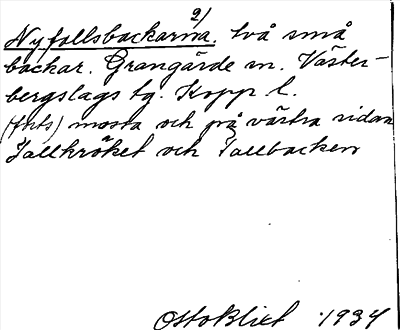 2/
Nyfallsbackarna. två små
backar. Grangärde sn. Väster-
bergslags tg. Kopp l.
(forts) mosta och på västra sidan
Tallkröket och Tallbacken
Otto Blixt 1934